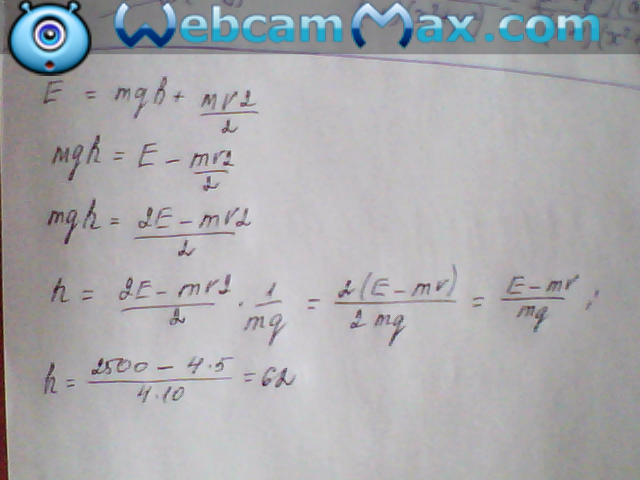 WebcamMax.com
E = mgh + mv2/2
mgh = E - mv2/2
mgh = 2E - mv2/2
h = 2E - mv2/2 · 1/mg = 2(E - mv)/2mg = E - mv/mg ;
h = 2500 - 4·5/4·10 = 62